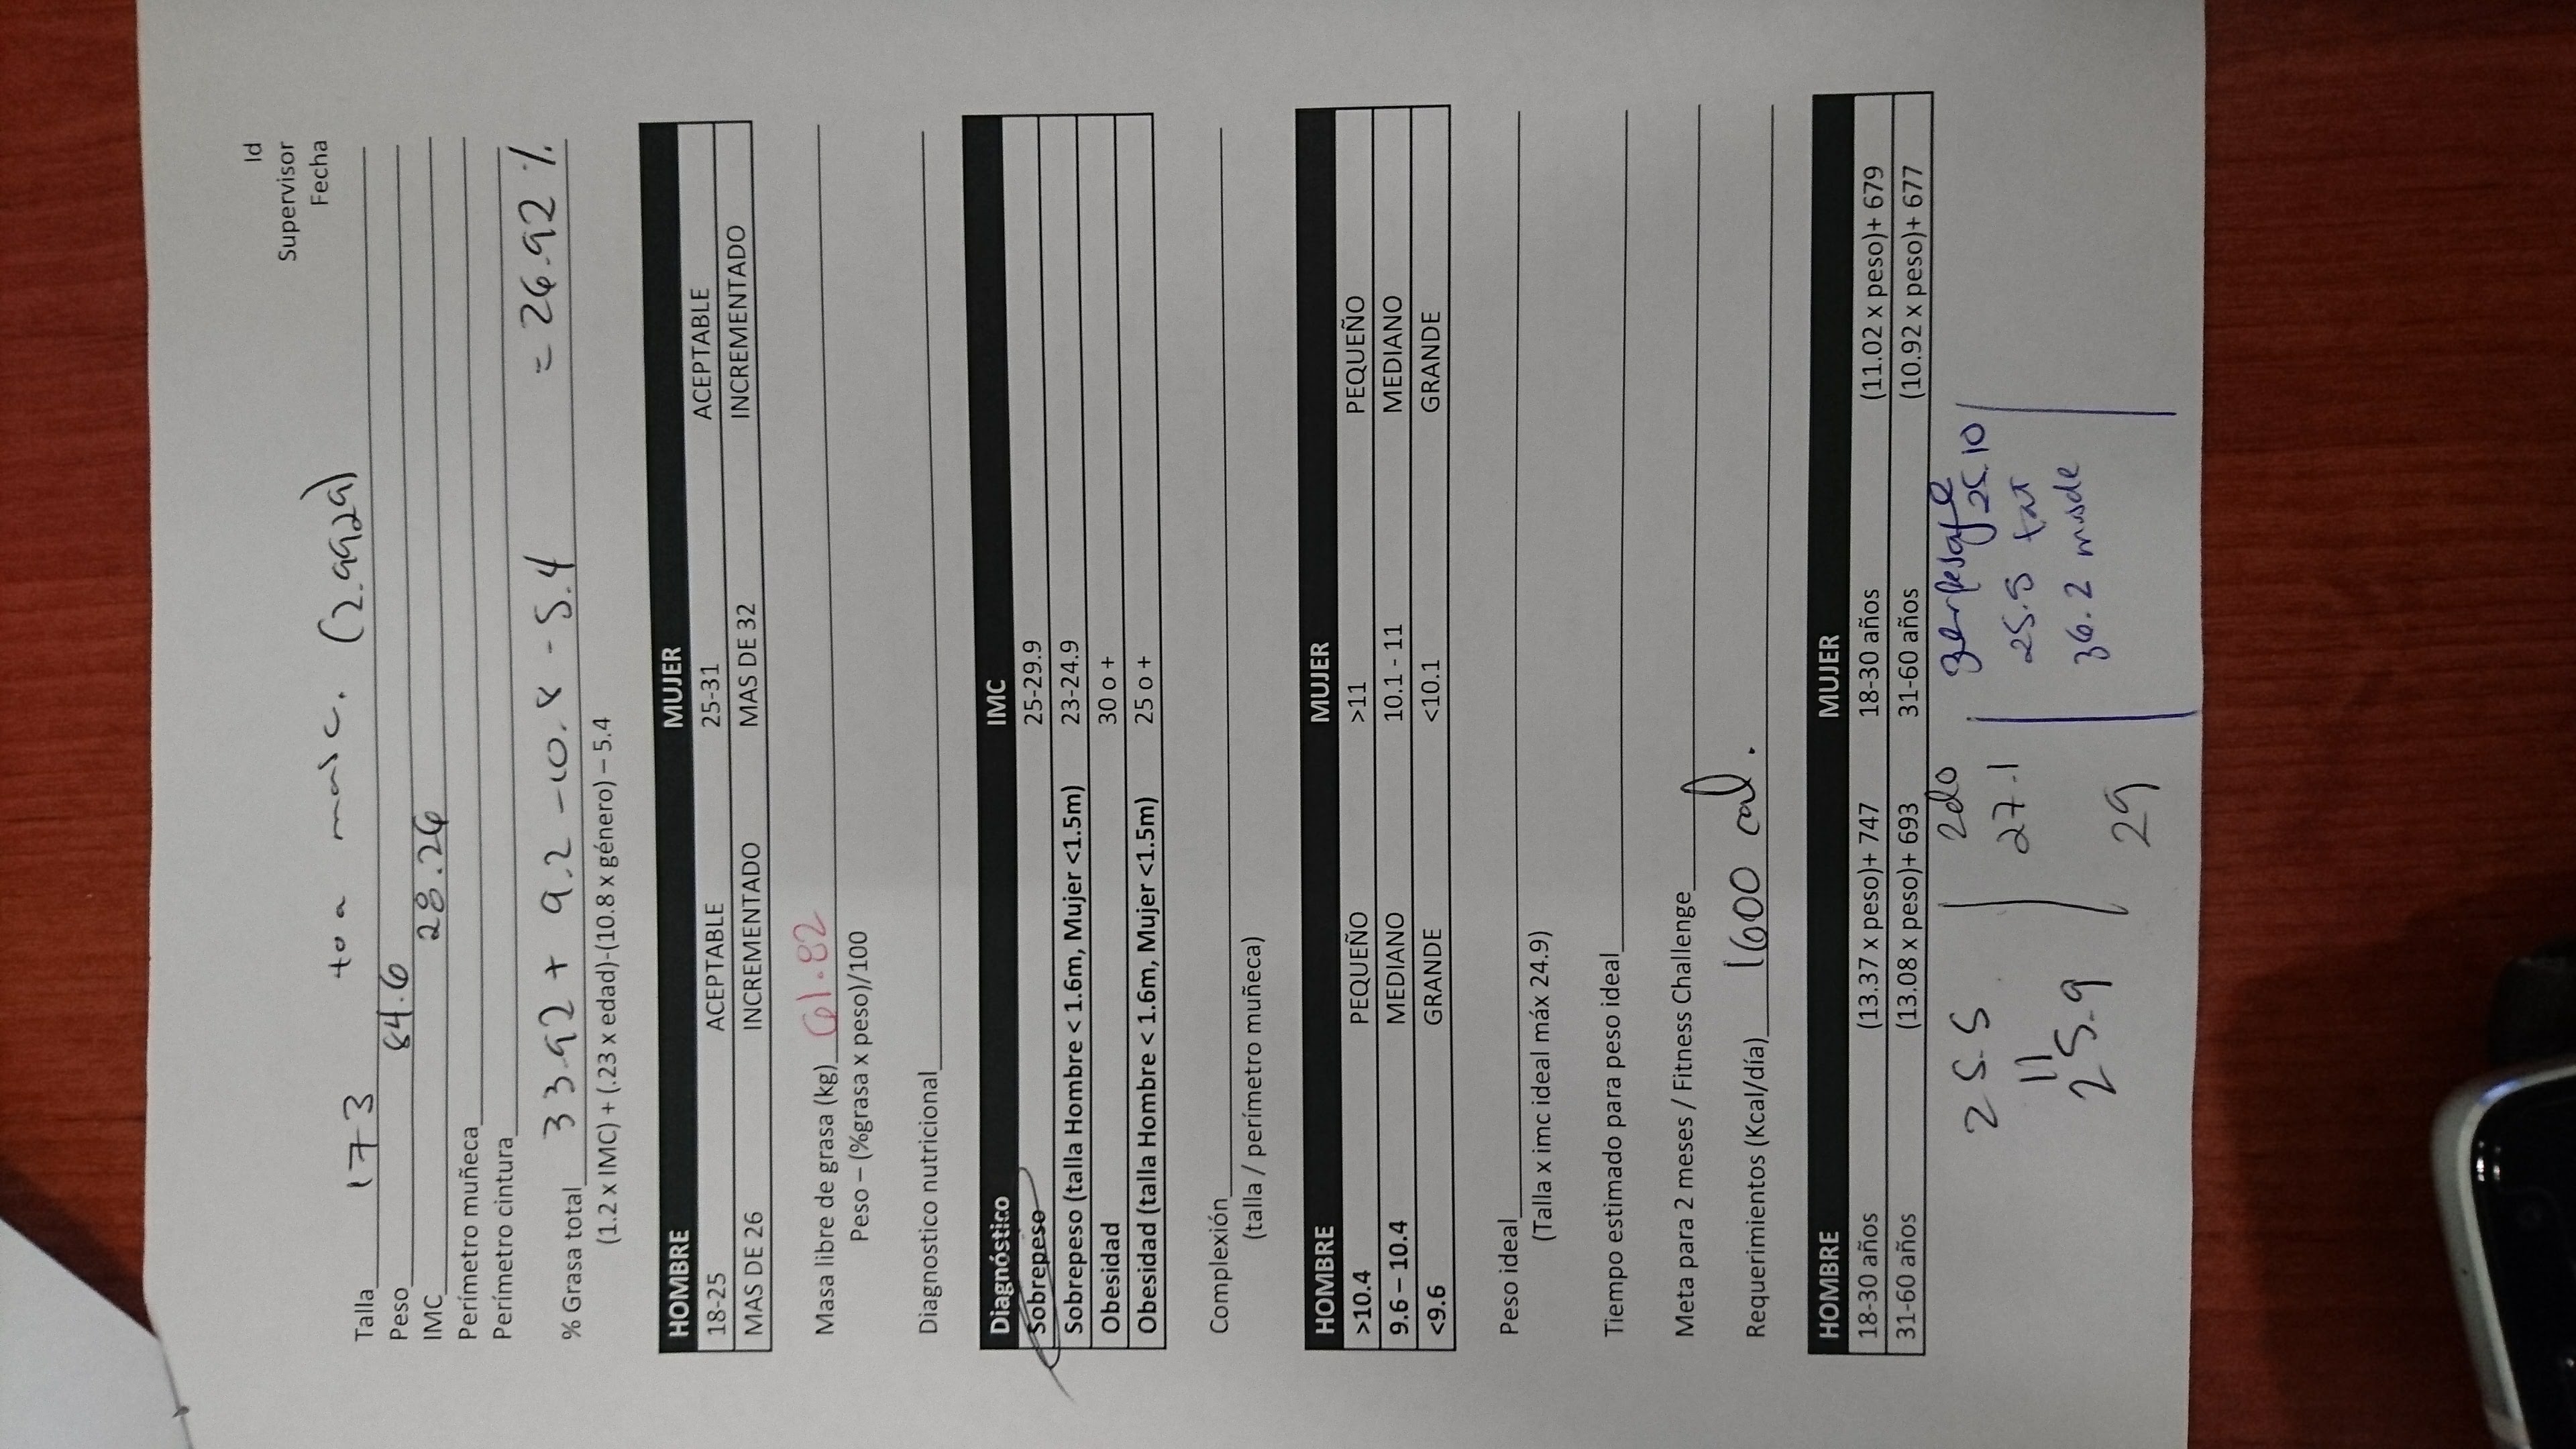 Id
Supervisor
Fecha
Talla 173 masc. (2.9929)
Peso 84.6
IMC 28.26
Perímetro muñeca
Perímetro cintura
% Grasa total 33.92 + 9.2 -10.8 - 5.4 = 26.92 %
(1.2 x IMC) + (.23 x edad)-(10.8 x género) – 5.4
HOMBRE MUJER
18-25 ACEPTABLE 25-31 ACEPTABLE
MAS DE 26 INCREMENTADO MAS DE 32 INCREMENTADO
Masa libre de grasa (kg) 61.82
Peso – (%grasa x peso)/100
Diagnostico nutricional
Diagnóstico IMC
Sobrepeso 25-29.9
Sobrepeso (talla Hombre < 1.6m, Mujer <1.5m) 23-24.9
Obesidad 30 o +
Obesidad (talla Hombre < 1.6m, Mujer <1.5m) 25 o +
Complexión
(talla / perímetro muñeca)
HOMBRE MUJER
>10.4 PEQUEÑO >11 PEQUEÑO
9.6 – 10.4 MEDIANO 10.1 - 11 MEDIANO
<9.6 GRANDE <10.1 GRANDE
Peso ideal
(Talla x imc ideal máx 24.9)
Tiempo estimado para peso ideal
Meta para 2 meses / Fitness Challenge
Requerimientos (Kcal/día) 1600 cal.
HOMBRE MUJER
18-30 años (13.37 x peso)+ 747 18-30 años (11.02 x peso)+ 679
31-60 años (13.08 x peso)+ 693 31-60 años (10.92 x peso)+ 677
25.5 2do 3er pesaje
25.10
11 27.1 25.5 fat
25.9 29 36.2 muscle